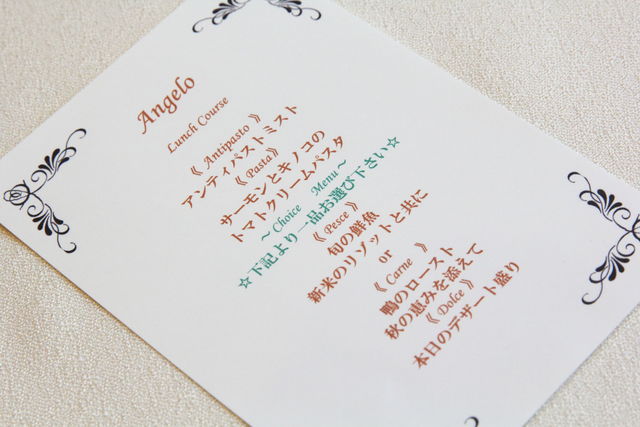 Angelo
Lunch Course
《 Antipasto 》
アンティパストミスト
《 Pasta》
サーモンとキノコの
トマトクリームパスタ
～Choice Menu～
☆下記より一品お選び下さい☆
《 Pesce 》
旬の鮮魚
新米のリゾットと共に
or
《 Carne 》
鴨のロースト
秋の恵みを添えて
《 Dolce 》
本日のデザート盛り